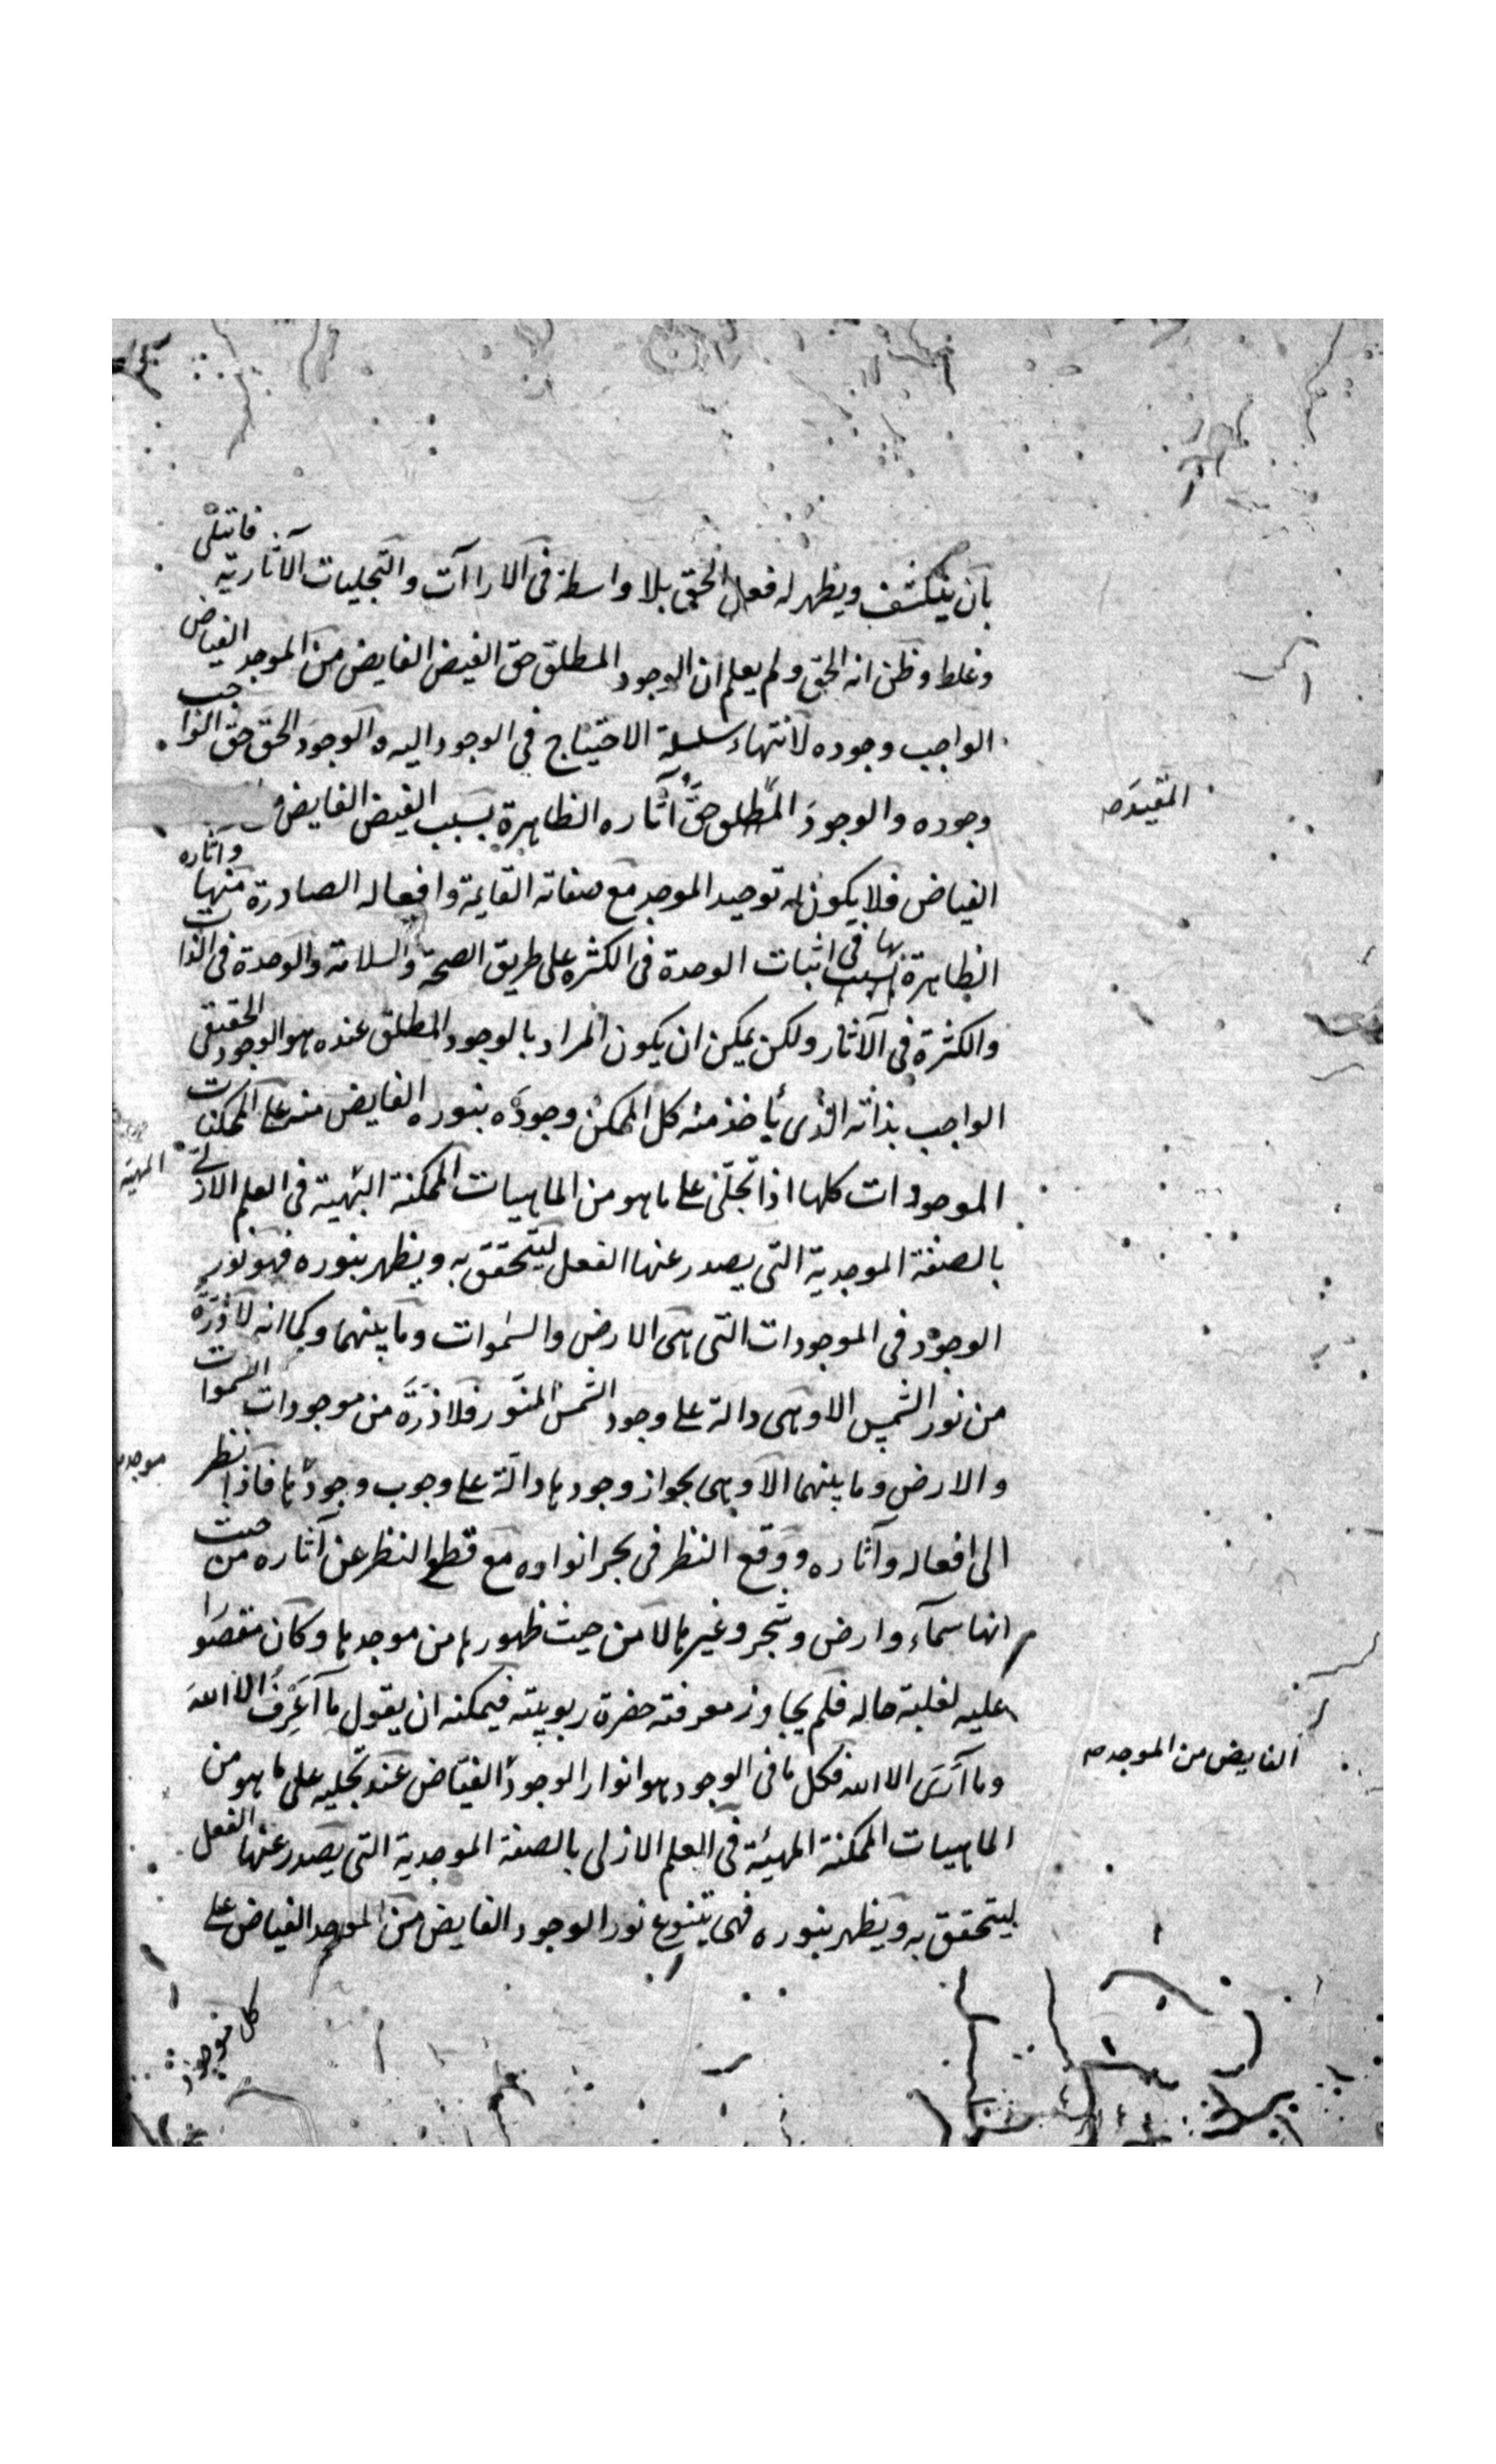 بان ينكشف ويظهر له فعل الحق بلا واسطة في الارا آت والتجليات الآثارية فابتلى
وغلط وظن انه الحق ولم يعلم ان الوجود المطلق حق الفيض الفايض من الموجد الفياض
الواجب وجوده لانتهاء سلسلة الاحتياج في الوجود اليه والوجود الحق حق الواجب
وجوده والوجود المطلق حق آثاره الظاهرة بسبب الفيض الفايض
المقيدة صح
الفياض فلا يكون له توحيد الموجد مع صفاته القايمة وافعاله الصادرة منها وآثاره
الظاهرة بسببها في اثبات الوحدة في الكثرة على طريق الصحة والسلامة والوحدة في الذات
والكثرة في الآثار ولكن يمكن ان يكون المراد بالوجود المطلق عنده هو الوجود الحقيقي
الواجب بذاته الذي يأخذ منه كل الممكن وجوده بنوره الفايض منه على الممكنات
الموجودات كلها اذا تجلى على ما هو من الماهيات الممكنة في العلم الازلي
المهيئة
بالصفة الموجدية التي يصدر عنها الفعل ليتحقق به ويظهر بنوره فهو نور
الوجود في الموجودات التي هي الارض والسموات وما بينهما وكما انه لا ذرة
من نور الشمس الا وهي دالة على وجود الشمس المنور فلا ذرة من موجودات السموات
والارض وما بينهما الا وهي بجواز وجودها دالة على وجوب وجودها فاذا نظر
موجد
الى افعاله وآثاره ووقع النظر في بحر انواره مع قطع النظر عن آثاره من حيث
انها سماء وارض وشجر وغيرها لا من حيث ظهورها من موجدها وكان مقصورا
عليه لغلبة حاله فلم يجاوز معرفته حضرة ربوبيته فيمكنه ان يقول ما اعرف الا الله
وما ارى الا الله فكل ما في الوجود هو انوار الوجود الفياض عند تجليه على ما هو من
الفايض من الموجد صح
الماهيات الممكنة المهيئة في العلم الازلي بالصفة الموجدية التي يصدر عنها الفعل
ليتحقق به ويظهر بنوره فهي يتنوع نور الوجود الفايض من الموجد الفياض على
كل موجود